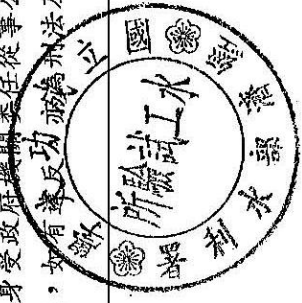 身受政府機關委任從事
，如有違反亦為刑法
國立
經濟部水利署
水工試驗所